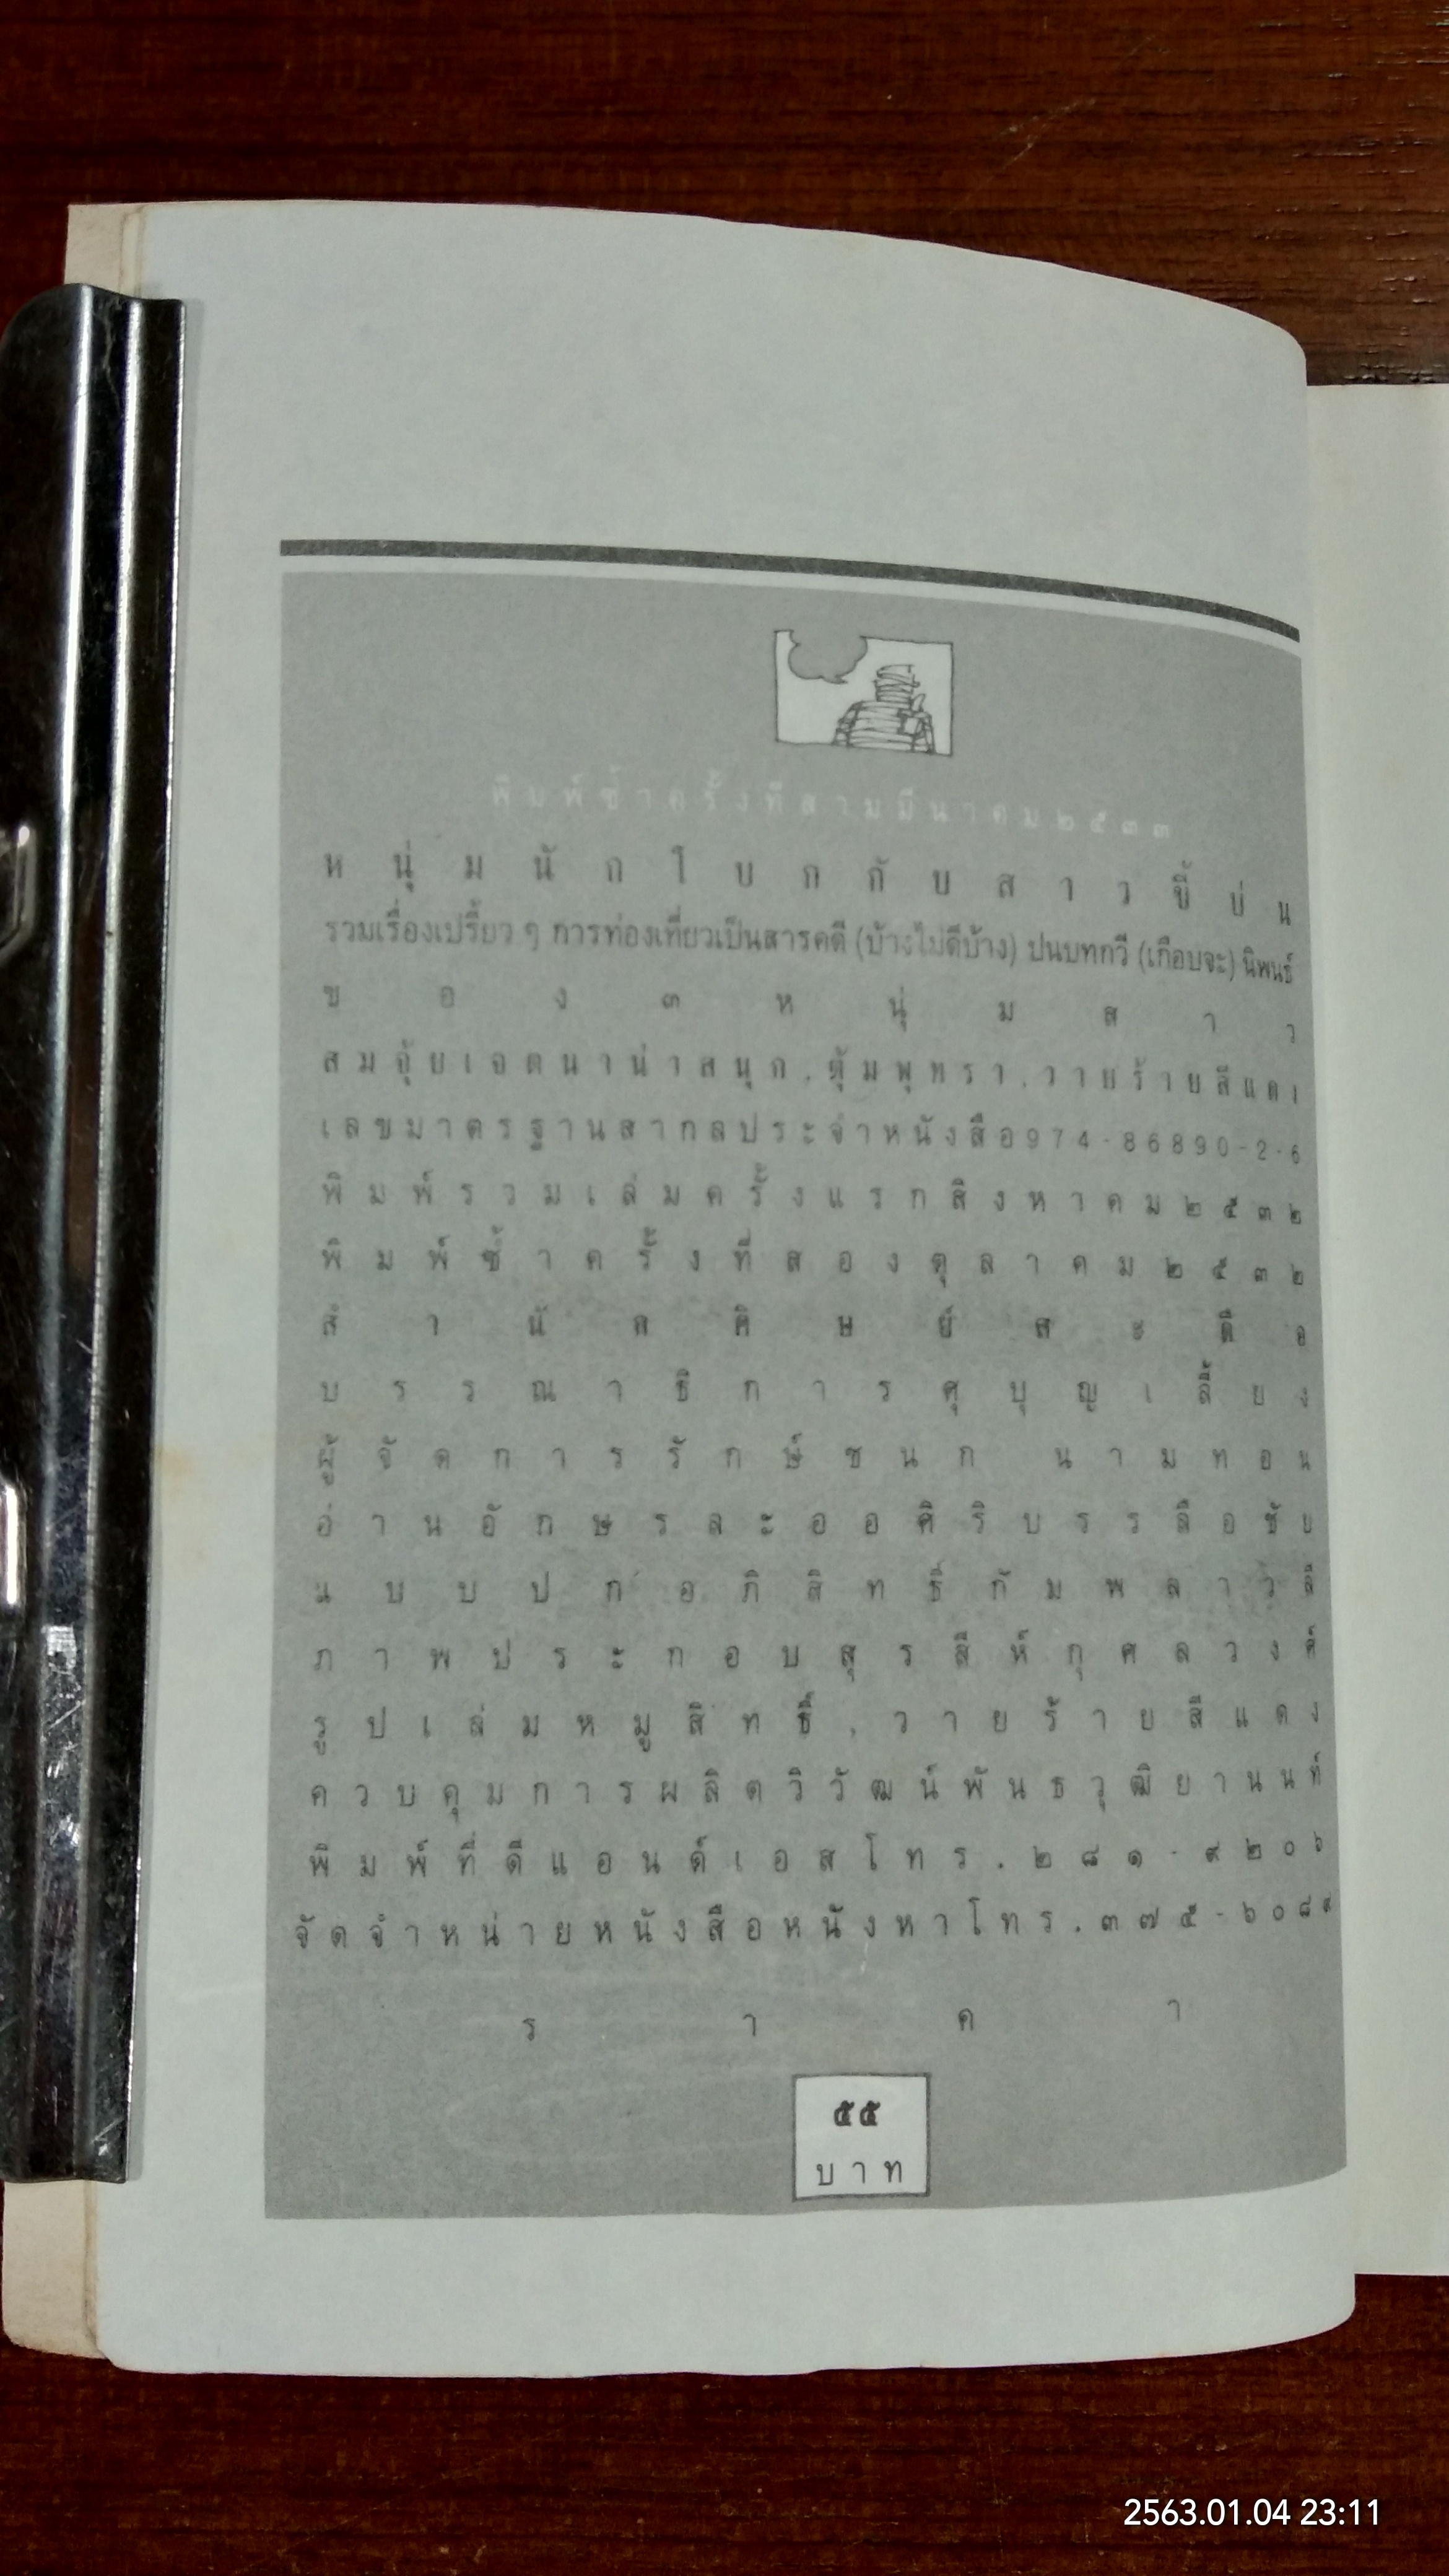 พิมพ์ซ้ำครั้งที่สามมีนาคม๒๕๓๓
หนุ่มนักโบกกับสาวขี้บ่น
รวมเรื่องเปรี้ยว ๆ การท่องเที่ยวเป็นสารคดี (บ้างไม่ดีบ้าง) ปนบทกวี (เกือบจะ) นิพนธ์
ของ๓หนุ่มสาว
สมจุ้ยเจตนาน่าสนุก,ตุ้มพุทรา,วายร้ายสีแดง
เลขมาตรฐานสากลประจำหนังสือ974-86890-2-6
พิมพ์รวมเล่มครั้งแรกสิงหาคม๒๕๓๒
พิมพ์ซ้ำครั้งที่สองตุลาคม๒๕๓๒
สำนักศิษย์สะดือ
บรรณาธิการศุบุญเลี้ยง
ผู้จัดการรักษ์ชนก นามทอน
อ่านอักษรละออศิริบรรลือชัย
แบบปกอภิสิทธิ์กัมพลาวลี
ภาพประกอบสุรสีห์กุศลวงศ์
รูปเล่มหมูสิทธิ์,วายร้ายสีแดง
ควบคุมการผลิตวิวัฒน์พันธวุฒิยานนท์
พิมพ์ที่ดีแอนด์เอสโทร.๒๘๑-๙๒๐๖
จัดจำหน่ายหนังสือหนังหาโทร.๓๗๕-๖๐๘๙
ราคา
๕๕
บาท
2563.01.04 23:11